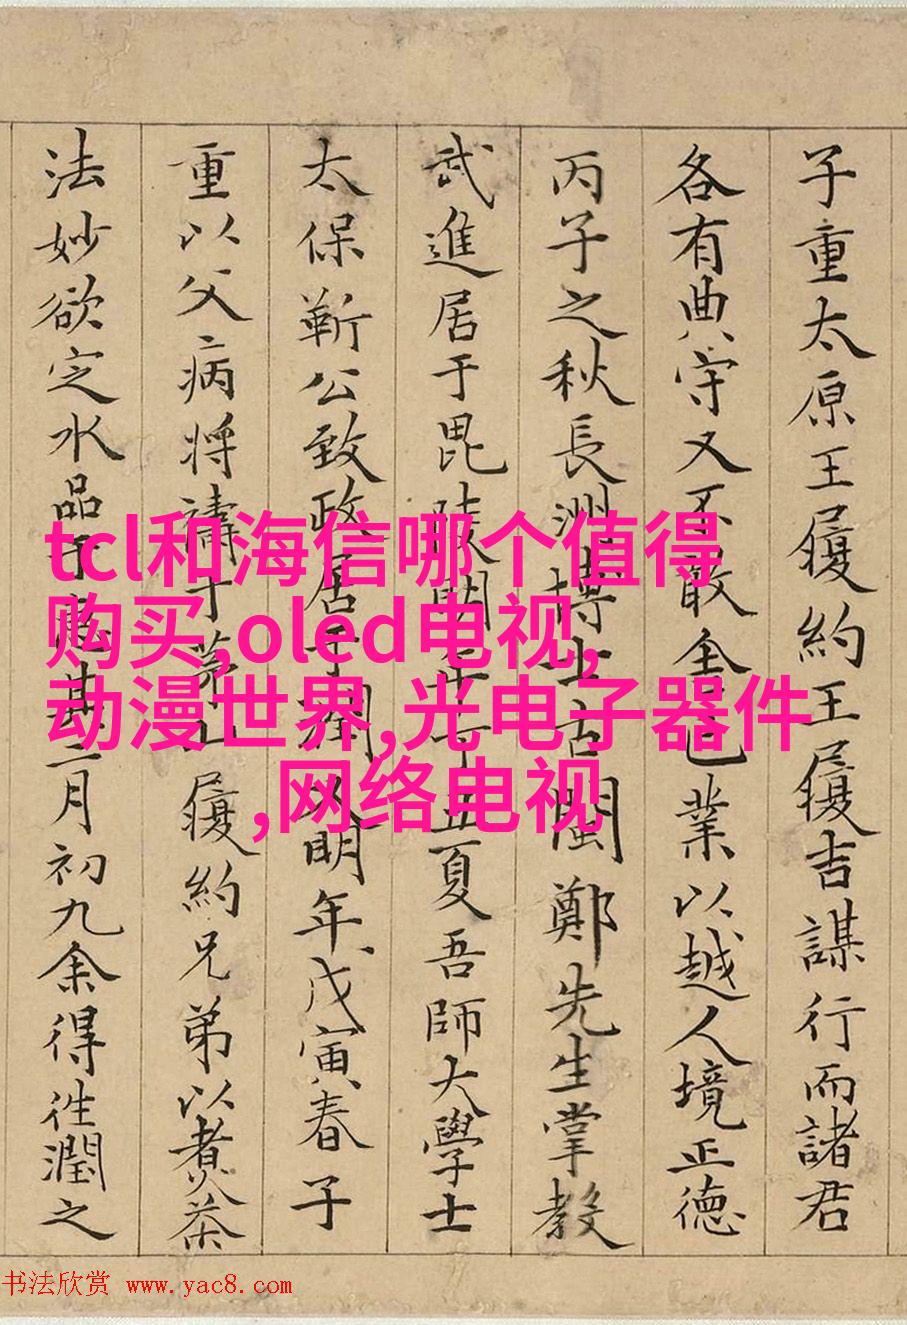 子重太原王履約王履吉謀行而諸君
各有典守又不敢舍己業以越人境正德
丙子之秋長洲博士古閩鄭先生掌教
武進居于毘陵明年丁丑夏吾師大學士
太保靳公致政居于潤又明年戊寅春子
重以父病將禱于茅山履約兄弟以煮茶
法妙欲定水品于惠其二月初九余得往潤之
tcl和海信哪个值得
购买,oled电视,
动漫世界,光电子器件
,网络电视
书法欣赏 www.yac8.com